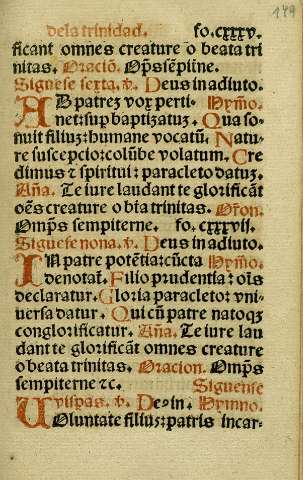 149
dela trinidad. fo.cxxxv.
ficant omnes creature o beata tri
nitas. Oracion. Ops sempiine.
Siguese sexta. v. Deus in adiuto.
AB patrez vox perti- Hymno.
net: sup baptizatuz. Qua so-
nuit filiuz: humane vocatū. Natu-
re suscepcio: colūbe volatum. Cre
dimus ⁊ spiritui: paracleto datuz.
Aña. Te iure laudant te glorificāt
oēs creature o bīa trinitas. Orōn.
Omps sempiterne. fo. cxxxvii.
Siguese nona. v. Deus in adiuto.
IN patre potētia: cūcta Hymno.
denotat. Filio prudentia: oīs
declaratur. Gloria paracleto: vni-
uersa datur. Qui cū patre natoqz
conglorificatur. Aña. Te iure lau
dant te glorificāt omnes creature
o beata trinitas. Oracion. Omps
sempiterne ⁊c. Siguense
Visperas. v. De⁹ in. Hymno.
Voluntate filius: patris incar-